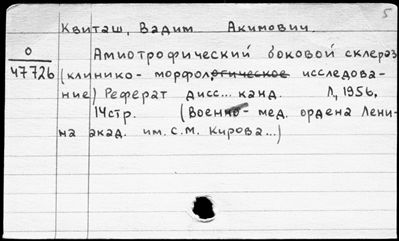 5
Квиташ, Вадим Акимович.
О Амиотрофический боковой склероз
47726 (клинико- морфологическое исследова-
ние) Реферат дисс... канд. Л, 1956,
14стр. (Военно- мед. ордена Лени-
на акад. им. С.М. Кирова...)